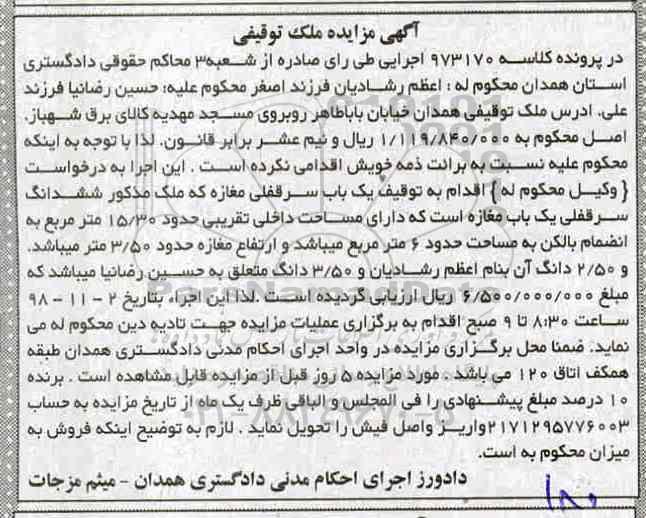 آگهی مزایده ملک توقیفی
در پرونده کلاسه ۹۷۳۱۷۰ اجرایی طی رای صادره از شعبه۳ محاکم حقوقی دادگستری
استان همدان محکوم له : اعظم رشادیان فرزند اصغر محکوم علیه: حسین رضانیا فرزند
علی. ادرس ملک توقیفی همدان خیابان باباطاهر روبروی مسجد مهدیه کالای برق شهباز.
اصل محکوم به ۱/۱۱۹/۸۴۰/۰۰۰ ریال و نیم عشر برابر قانون. لذا با توجه به اینکه
محکوم علیه نسبت به برائت ذمه خویش اقدامی نکرده است . این اجرا به درخواست
{ وکیل محکوم له } اقدام به توقیف یک باب سرقفلی مغازه که ملک مذکور ششدانگ
سرقفلی یک باب مغازه است که دارای مساحت داخلی تقریبی حدود ۱۵/۳۰ متر مربع به
انضمام بالکن به مساحت حدود ۶ متر مربع میباشد و ارتفاع مغازه حدود ۳/۵۰ متر میباشد.
و ۲/۵۰ دانگ آن بنام اعظم رشادیان و ۳/۵۰ دانگ متعلق به حسین رضانیا میباشد که
مبلغ ۶/۵۰۰/۰۰۰/۰۰۰ ریال ارزیابی گردیده است .لذا این اجراء بتاریخ ۲ - ۱۱ - ۹۸
ساعت ۸:۳۰ تا ۹ صبح اقدام به برگزاری عملیات مزایده جهت تادیه دین محکوم له می
نماید. ضمنا محل برگزاری مزایده در واحد اجرای احکام مدنی دادگستری همدان طبقه
همکف اتاق ۱۲۰ می باشد . مورد مزایده ۵ روز قبل از مزایده قابل مشاهده است . برنده
۱۰ درصد مبلغ پیشنهادی را فی المجلس و الباقی ظرف یک ماه از تاریخ مزایده به حساب
۲۱۷۱۲۹۵۷۷۶۰۰۳واریز واصل فیش را تحویل نماید . لازم به توضیح اینکه فروش به
میزان محکوم به است.
دادورز اجرای احکام مدنی دادگستری همدان - میثم مزجات
۱۸۰